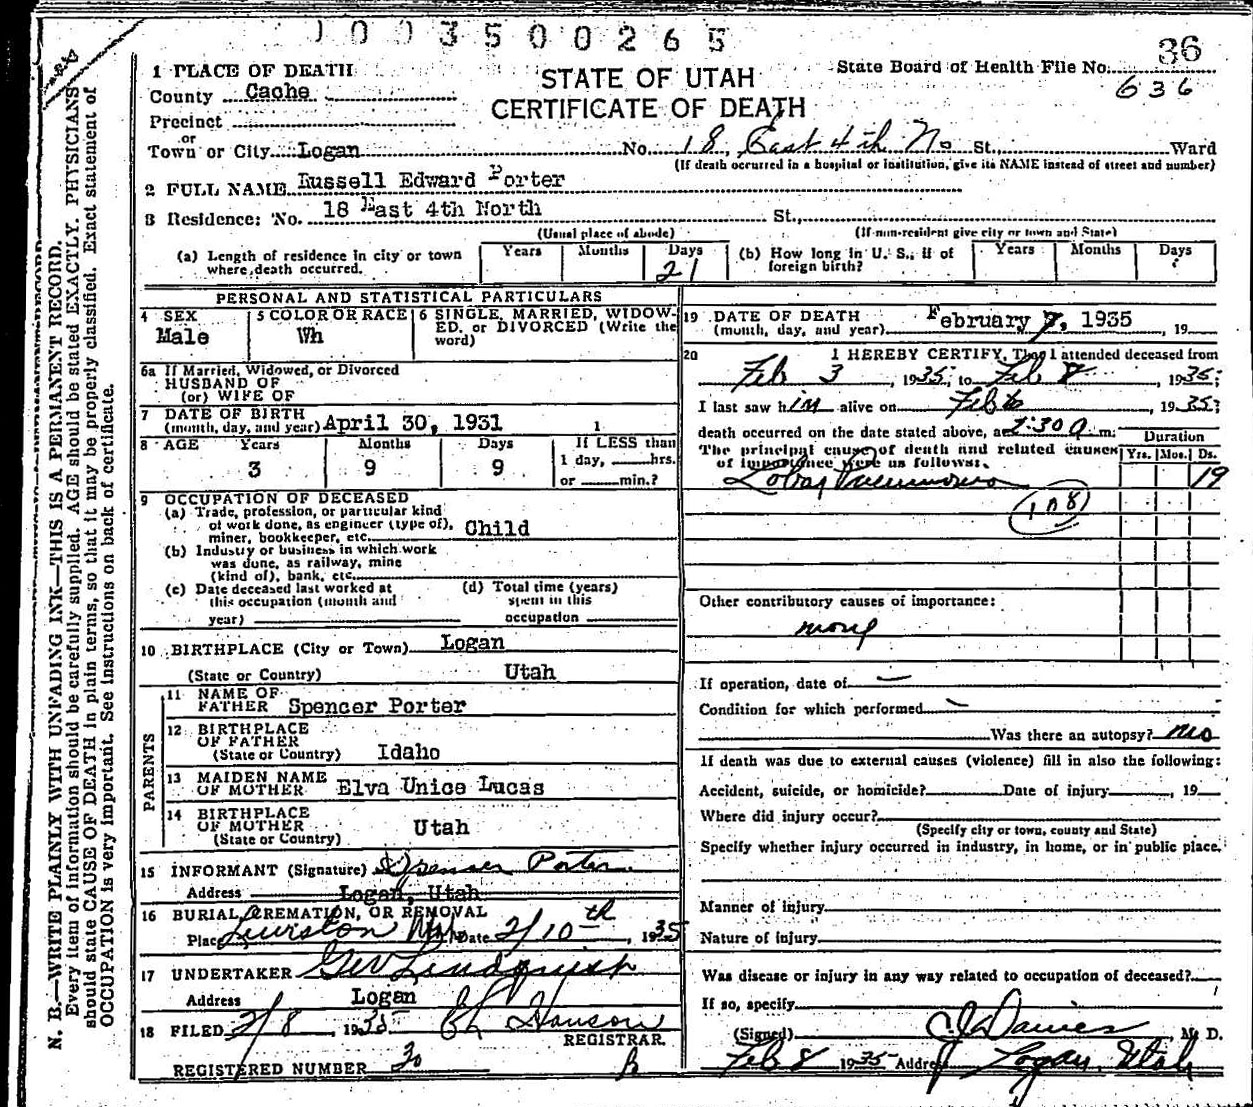 1003500265
36
State Board of Health File No.
636
STATE OF UTAH
CERTIFICATE OF DEATH
1 PLACE OF DEATH
County Cache
Precinct
or
Town or City Logan No. 18 East 4th No St., Ward
(If death occurred in a hospital or institution, give its NAME instead of street and number)
2 FULL NAME Russell Edward Porter
3 Residence: No. 18 East 4th North St.,
(Usual place of abode) (If non-resident give city or town and State)
(a) Length of residence in city or town where death occurred. Years Months Days 21
(b) How long in U. S., if of foreign birth? Years Months Days
PERSONAL AND STATISTICAL PARTICULARS
4 SEX Male
5 COLOR OR RACE Wh
6 SINGLE, MARRIED, WIDOWED, or DIVORCED (Write the word)
6a If Married, Widowed, or Divorced
HUSBAND OF
(or) WIFE OF
7 DATE OF BIRTH
(month, day, and year) April 30, 1931
8 AGE Years 3 Months 9 Days 9
If LESS than
1 day, hrs.
or min.?
9 OCCUPATION OF DECEASED
(a) Trade, profession, or particular kind
of work done, as engineer (type of),
miner, bookkeeper, etc. Child
(b) Industry or business in which work
was done, as railway, mine
(kind of), bank, etc.
(c) Date deceased last worked at
this occupation (month and
year)
(d) Total time (years)
spent in this
occupation
10 BIRTHPLACE (City or Town) Logan
(State or Country) Utah
PARENTS
11 NAME OF
FATHER Spencer Porter
12 BIRTHPLACE
OF FATHER
(State or Country) Idaho
13 MAIDEN NAME
OF MOTHER Elva Unice Lucas
14 BIRTHPLACE
OF MOTHER
(State or Country) Utah
15 INFORMANT (Signature) Spencer Porter
Address Logan, Utah
16 BURIAL, CREMATION, OR REMOVAL
Place Lewiston Utah Date 2/10th, 1935
17 UNDERTAKER Geo Lindquist
Address Logan
18 FILED 2/8, 1935 Hanson
REGISTRAR.
REGISTERED NUMBER 30
19 DATE OF DEATH
(month, day, and year) February 7, 1935, 19
20 I HEREBY CERTIFY, That I attended deceased from
Feb 3, 1935; to Feb 8, 1935;
I last saw him alive on Feb 6, 1935;
death occurred on the date stated above, at 2:30 a m.
The principal cause of death and related causes
of importance were as follows:
Duration
Yrs. Mos. Ds.
Lobar Pneumonia 19
(108)
Other contributory causes of importance:
none
If operation, date of —
Condition for which performed —
Was there an autopsy? no
If death was due to external causes (violence) fill in also the following:
Accident, suicide, or homicide? Date of injury, 19
Where did injury occur?
(Specify city or town, county and State)
Specify whether injury occurred in industry, in home, or in public place.
Manner of injury
Nature of injury
Was disease or injury in any way related to occupation of deceased?
If so, specify
(Signed) Daines M. D.
Feb 8 1935 Address Logan, Utah
N. B.—WRITE PLAINLY WITH UNFADING INK—THIS IS A PERMANENT RECORD.
Every item of information should be carefully supplied. AGE should be stated EXACTLY. PHYSICIANS
should state CAUSE OF DEATH in plain terms, so that it may be properly classified. Exact statement of
OCCUPATION is very important. See instructions on back of certificate.